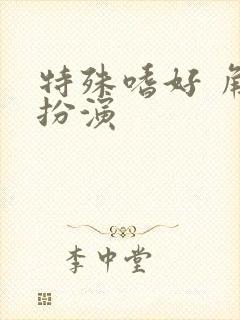 特殊嗜好 角
扮演
李中堂